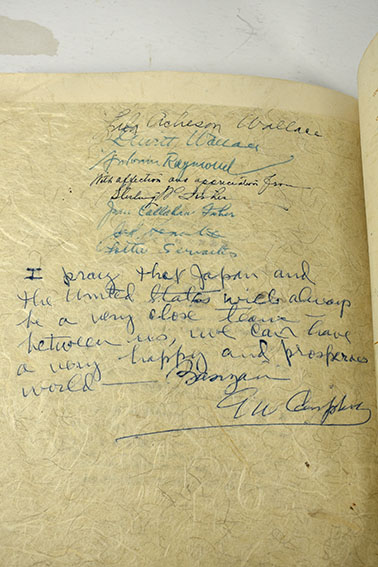 Lila Acheson Wallace
DeWitt Wallace
Antonin Raymond
With affection and appreciation from
Sterling W Fisher
Jean Callahan Fisher
I pray that Japan and
the United States will always
be a very close team
between us, we can have
a very happy and prosperous
world — Banzai